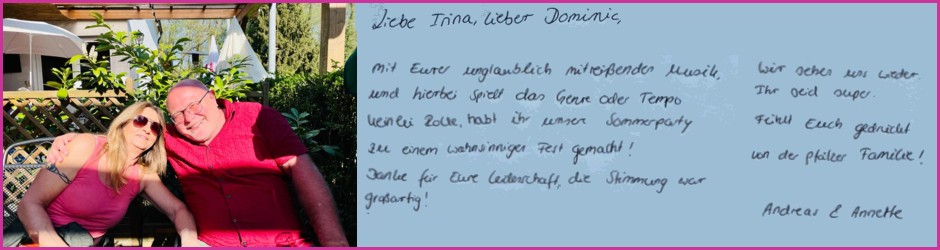 Liebe Irina, lieber Dominic,
mit Eurer unglaublich mitreißenden Musik,
und hierbei spielt das Genre oder Tempo
keinerlei Rolle, habt ihr unsere Sommerparty
zu einem wahnsinnigen Fest gemacht!
Danke für Eure Leidenschaft, die Stimmung war
großartig!
Wir sehen uns wieder.
Ihr seid super.
Fühlt Euch gedrückt
von der pfälzer Familie!
Andreas & Annette